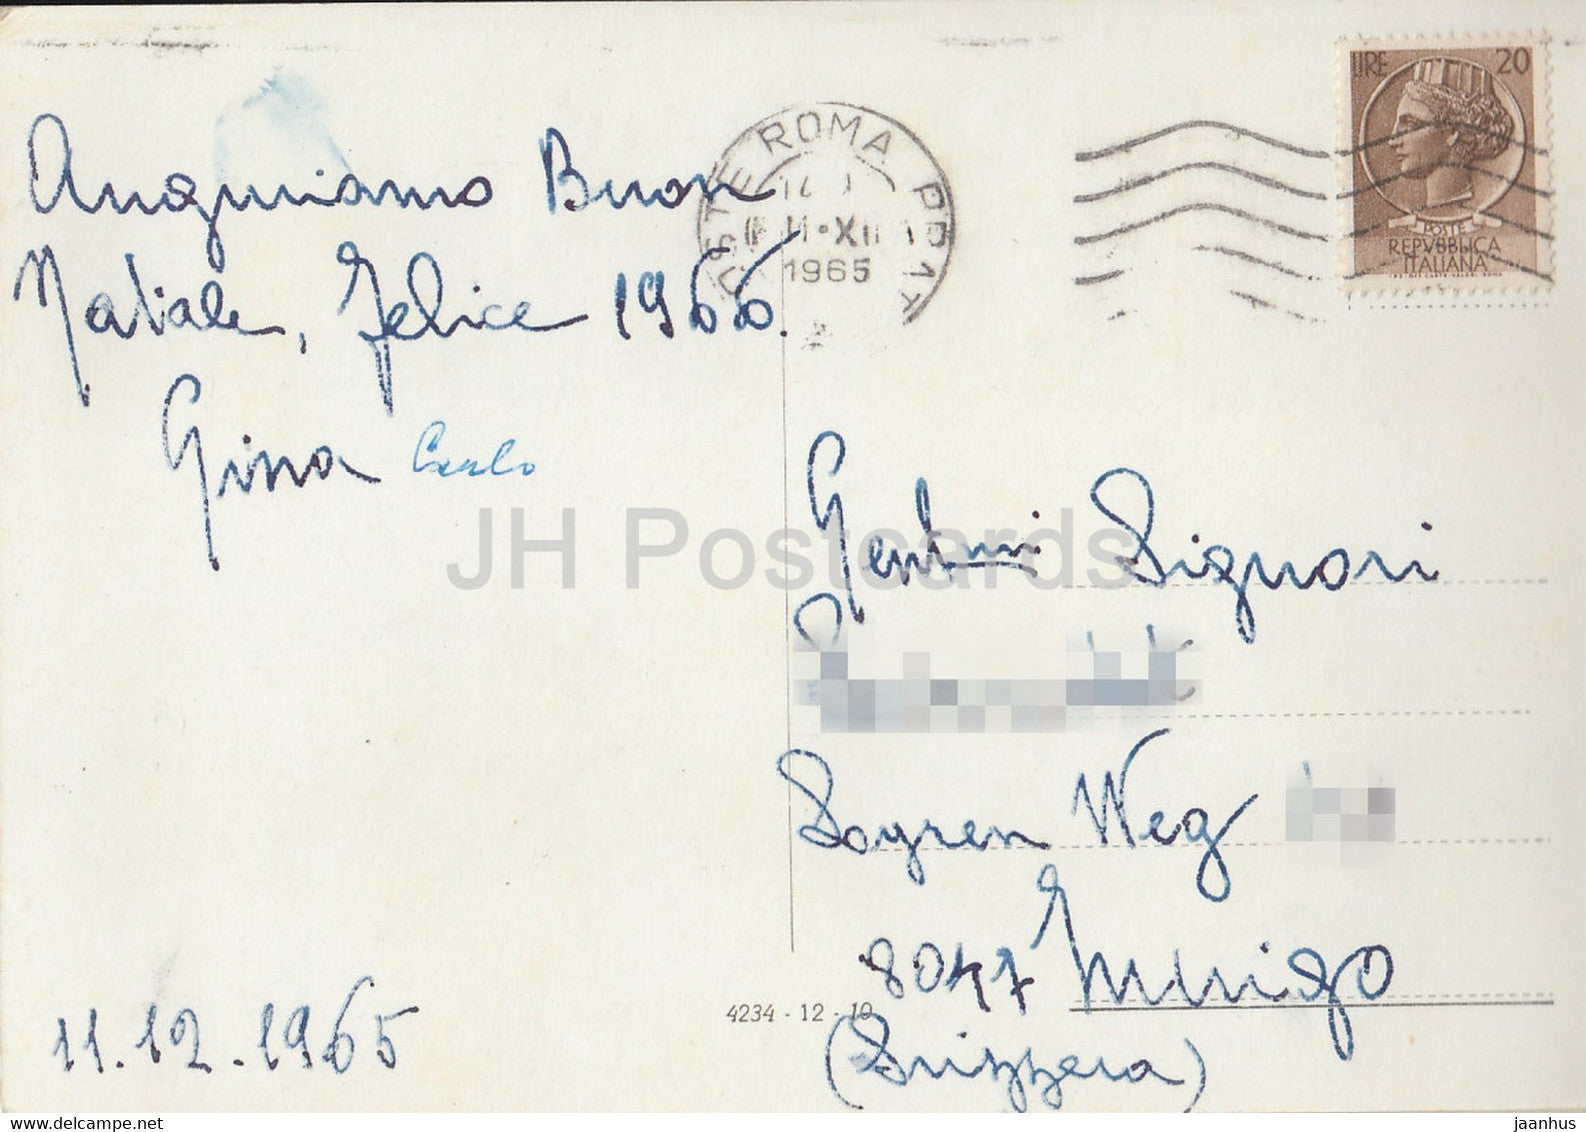 Auguriamo Buon
Natale, felice 1966.
Gina Carlo
11.12.1965
POSTE ROMA
11·XII
1965
LIRE 20
POSTE
REPVBBLICA
ITALIANA
Gent.mi Signori
Weg
8047 Zurigo
(Svizzera)
4234 - 12 - 10
JH Postcards
jaanhus